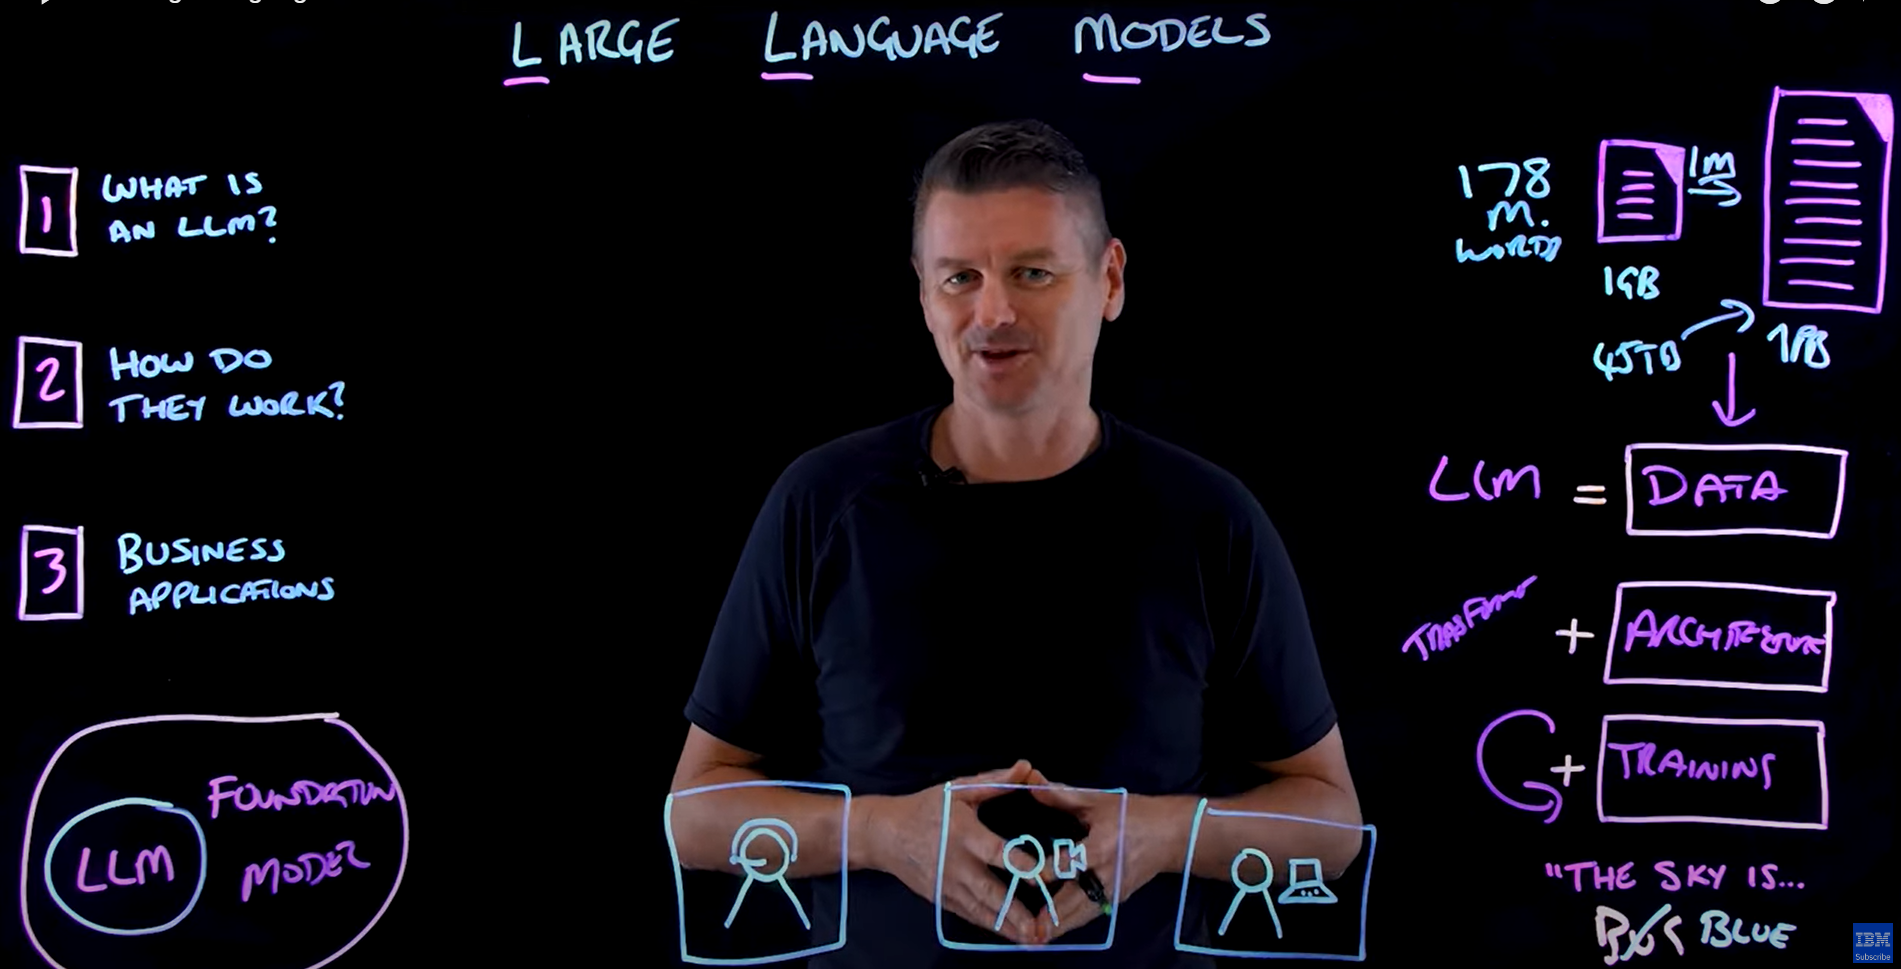 LARGE LANGUAGE MODELS
1 WHAT IS
AN LLM?
2 HOW DO
THEY WORK?
3 BUSINESS
APPLICATIONS
LLM
FOUNDATION
MODEL
178
M.
WORDS
1GB
1M
45TB
1PB
LLM = DATA
+ ARCHITECTURE
+ TRAINING
"THE SKY IS...
BLUE
IBM
Subscribe